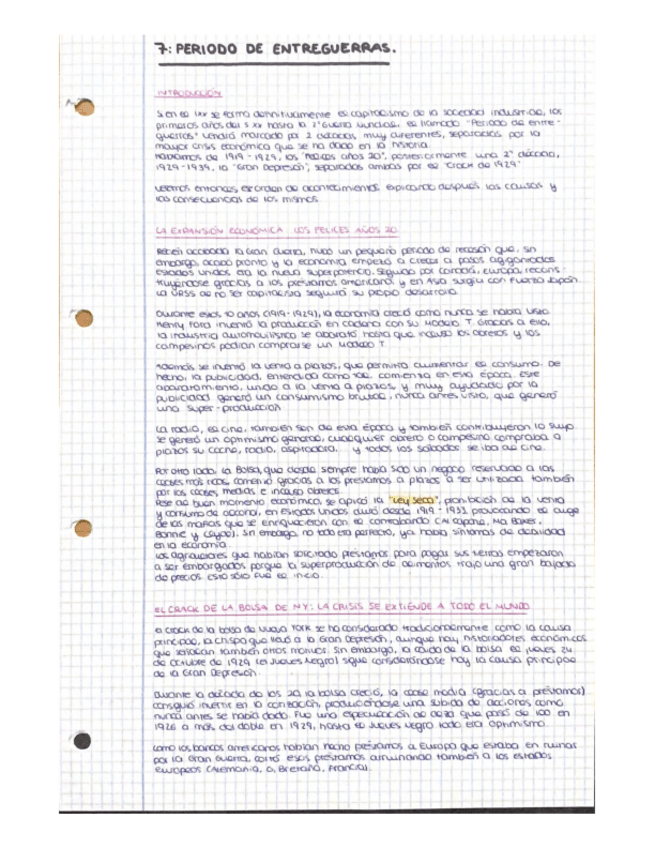 7: PERIODO DE ENTREGUERRAS.
INTRODUCCIÓN
Si en el XIX se formó definitivamente el capitalismo de la sociedad industrial, los
primeros años del S XX hasta la 2ª Guerra Mundial, el llamado "Periodo de entre-
guerras" vendrá marcado por 2 décadas, muy diferentes, separadas por la
mayor crisis económica que se ha dado en la historia.
Hablamos de 1919-1929, los "Felices años 20", posteriormente una 2ª década,
1929-1939, la "Gran Depresión", separadas ambas por el "Crack de 1929"
Veamos entonces el orden de acontecimientos, explicando después las causas y
las consecuencias de los mismos.
LA EXPANSIÓN ECONÓMICA: LOS FELICES AÑOS 20
Recién acabada la Gran Guerra, hubo un pequeño periodo de recesión que, sin
embargo, acabó pronto y la economía empezó a crecer a pasos agigantados
Estados Unidos era la nueva superpotencia. Seguido por Canadá, Europa, recons-
truyéndose gracias a los préstamos americanos y en Asia surgía con fuerza Japón.
La URSS al no ser capitalista seguirá su propio desarrollo.
Durante estos 10 años (1919-1929), la economía creció como nunca se había visto
Henry Ford inventó la producción en cadena con su Modelo T. Gracias a ello,
la industria automovilística se abarató hasta que incluso los obreros y los
campesinos podían comprarse un Modelo T.
Además se inventó la venta a plazos, que permitía aumentar el consumo. De
hecho, la publicidad, entendida como tal, comienza en esta época. Este
abaratamiento, unido a la venta a plazos, y muy ayudado por la
publicidad generó un consumismo brutal, nunca antes visto, que generó
una super-producción
La radio, el cine, también son de esta época y también contribuyeron lo suyo.
Se generó un optimismo general, cualquier obrero o campesino compraba a
plazos su coche, radio, aspiradora, y todos los sábados se iba al cine.
Por otro lado, la Bolsa, que desde siempre había sido un negocio reservado a las
clases más ricas, comenzó gracias a los préstamos a plazos a ser utilizada también
por las clases medias e incluso obreros.
Pese al buen momento económico, se aplicó la "Ley Seca", prohibición de la venta
y consumo de alcohol, en Estados Unidos duró desde 1919-1933 provocando el auge
de las mafias que se enriquecieron con el contrabando (Al Capone, Ma Baker,
Bonnie y Clyde). Sin embargo, no todo era perfecto, ya había síntomas de debilidad
en la economía.
Los agricultores que habían solicitado préstamos para pagar sus tierras empezaron
a ser embargados porque la superproducción de alimentos trajo una gran bajada
de precios. Esto sólo fue el inicio.
EL CRACK DE LA BOLSA DE NY: LA CRISIS SE EXTIENDE A TODO EL MUNDO
El crack de la bolsa de Nueva York se ha considerado tradicionalmente como la causa
principal, la chispa que llevó a la Gran Depresión, aunque hay historiadores económicos
que señalan también otros motivos. Sin embargo, la caída de la bolsa el jueves 24
de Octubre de 1929 (el Jueves Negro) sigue considerándose hoy la causa principal
de la Gran Depresión.
Durante la década de los 20, la bolsa creció, la clase media (gracias a préstamos)
consiguió invertir en la cotización, produciéndose una subida de acciones como
nunca antes se había dado. Fue una especulación al alza que pasó de 100 en
1926 a más del doble en 1929, hasta el Jueves Negro todo era optimismo.
Como los bancos americanos habían hecho préstamos a Europa que estaba en ruinas
por la Gran Guerra, cortó esos préstamos arruinando también a los estados
europeos (Alemania, G. Bretaña, Francia).